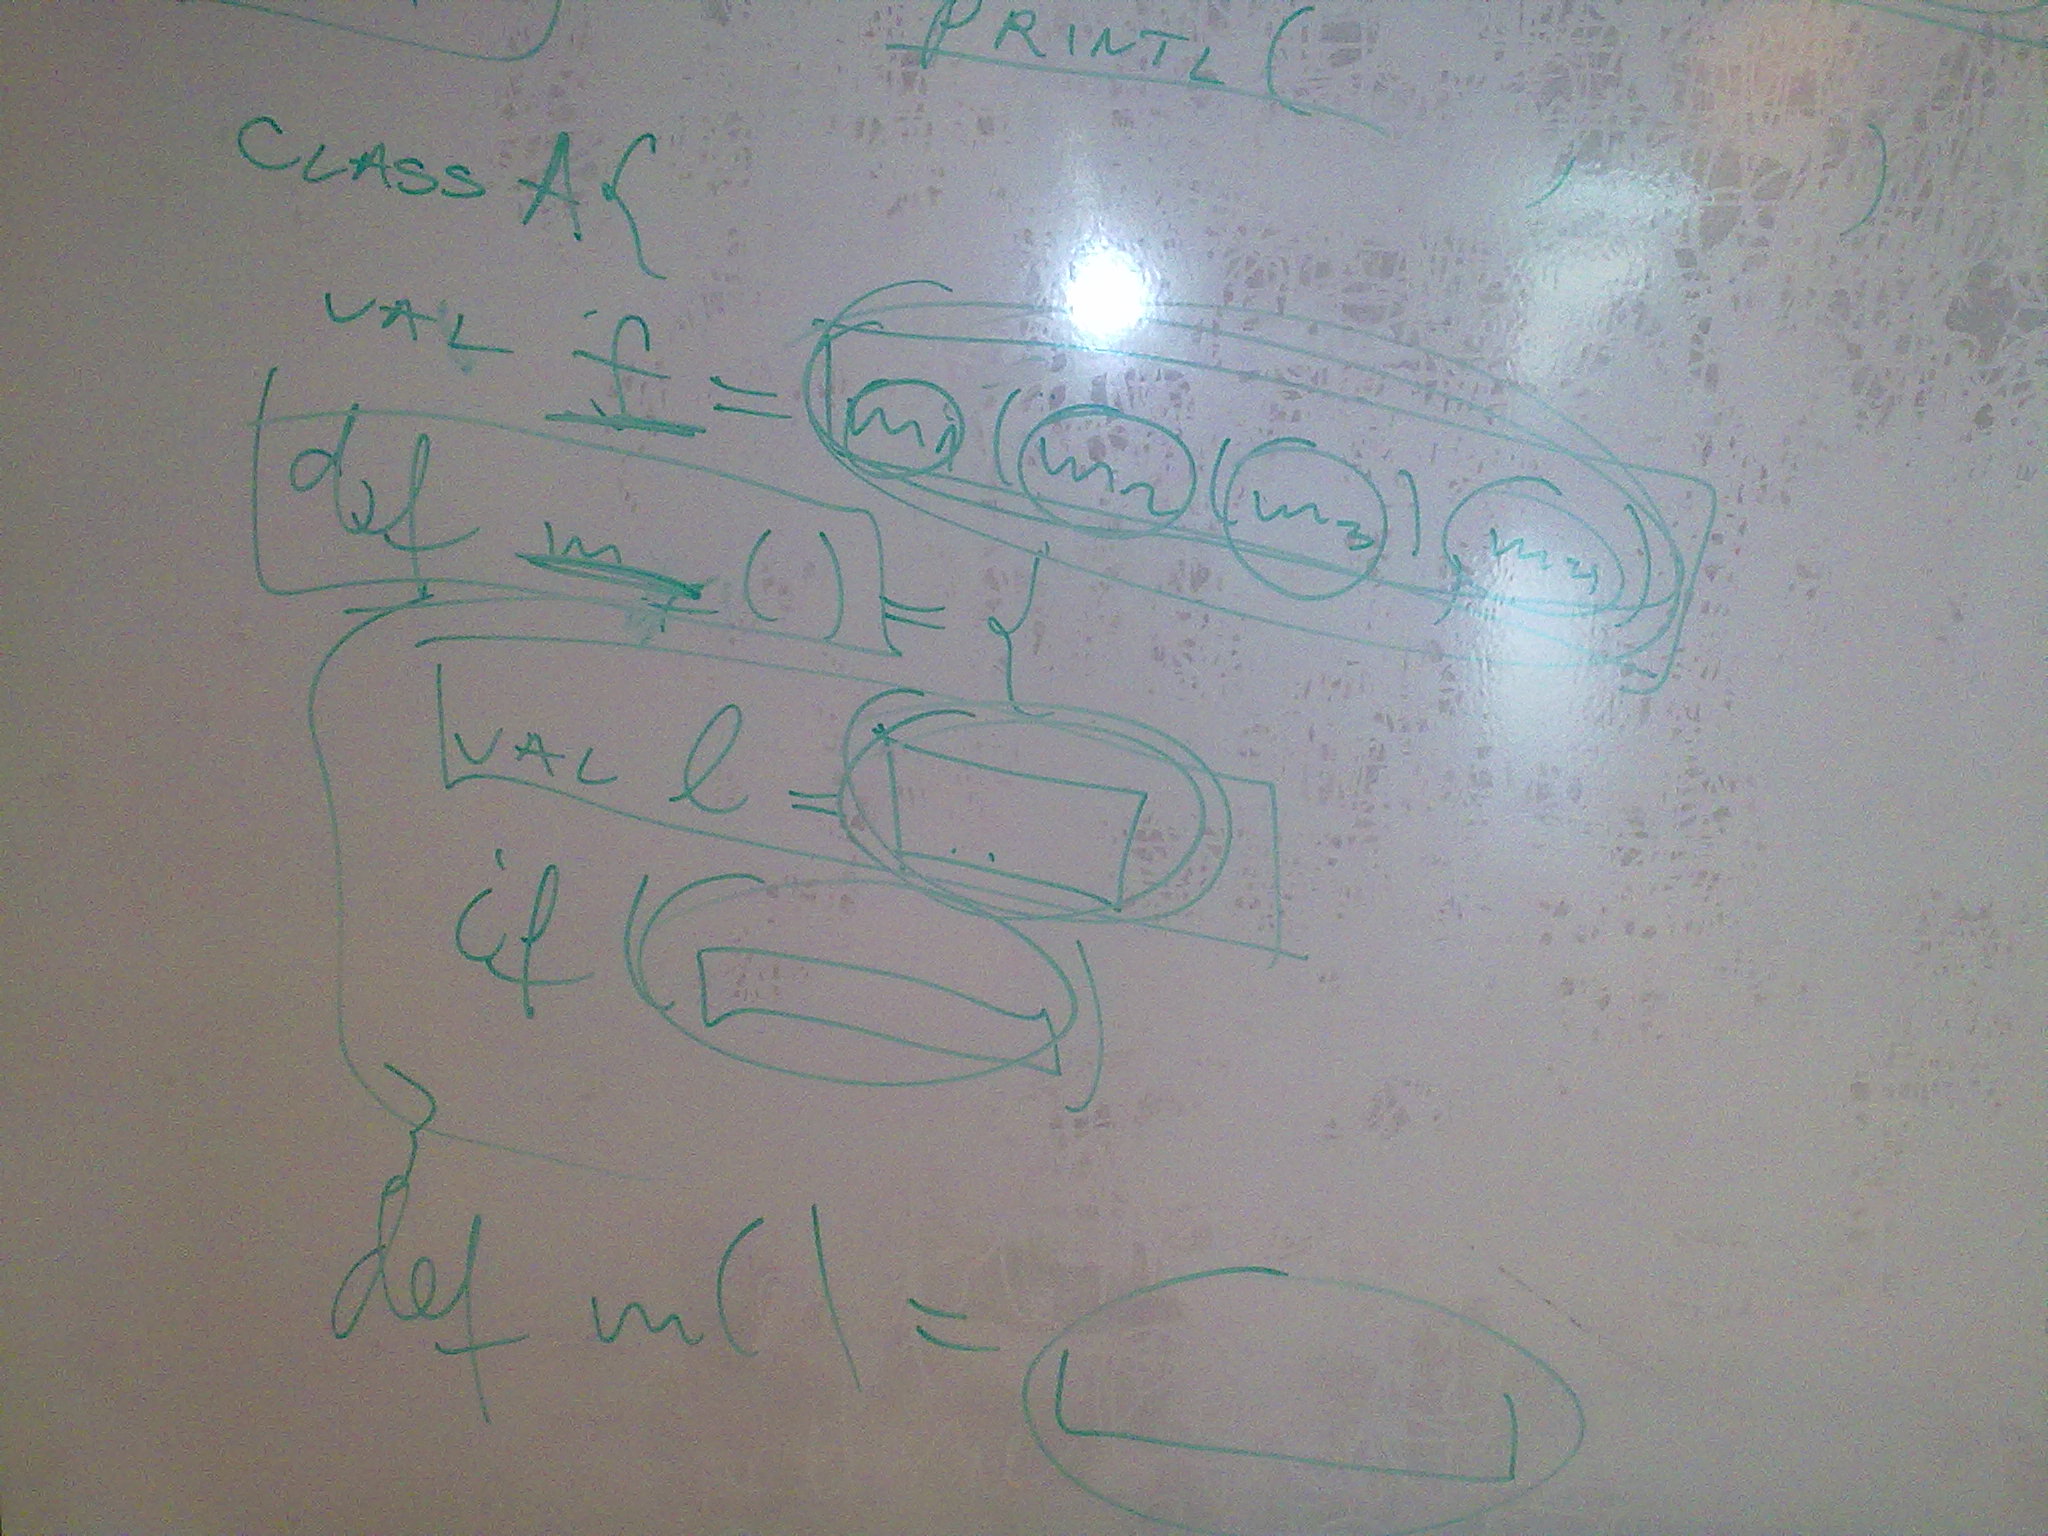 PRINTL ( , )
CLASS A {
VAL f = m1 (m2 (m3) , m4)
def m () = {
VAL l = ..
if ( )
}
def m ( ) =